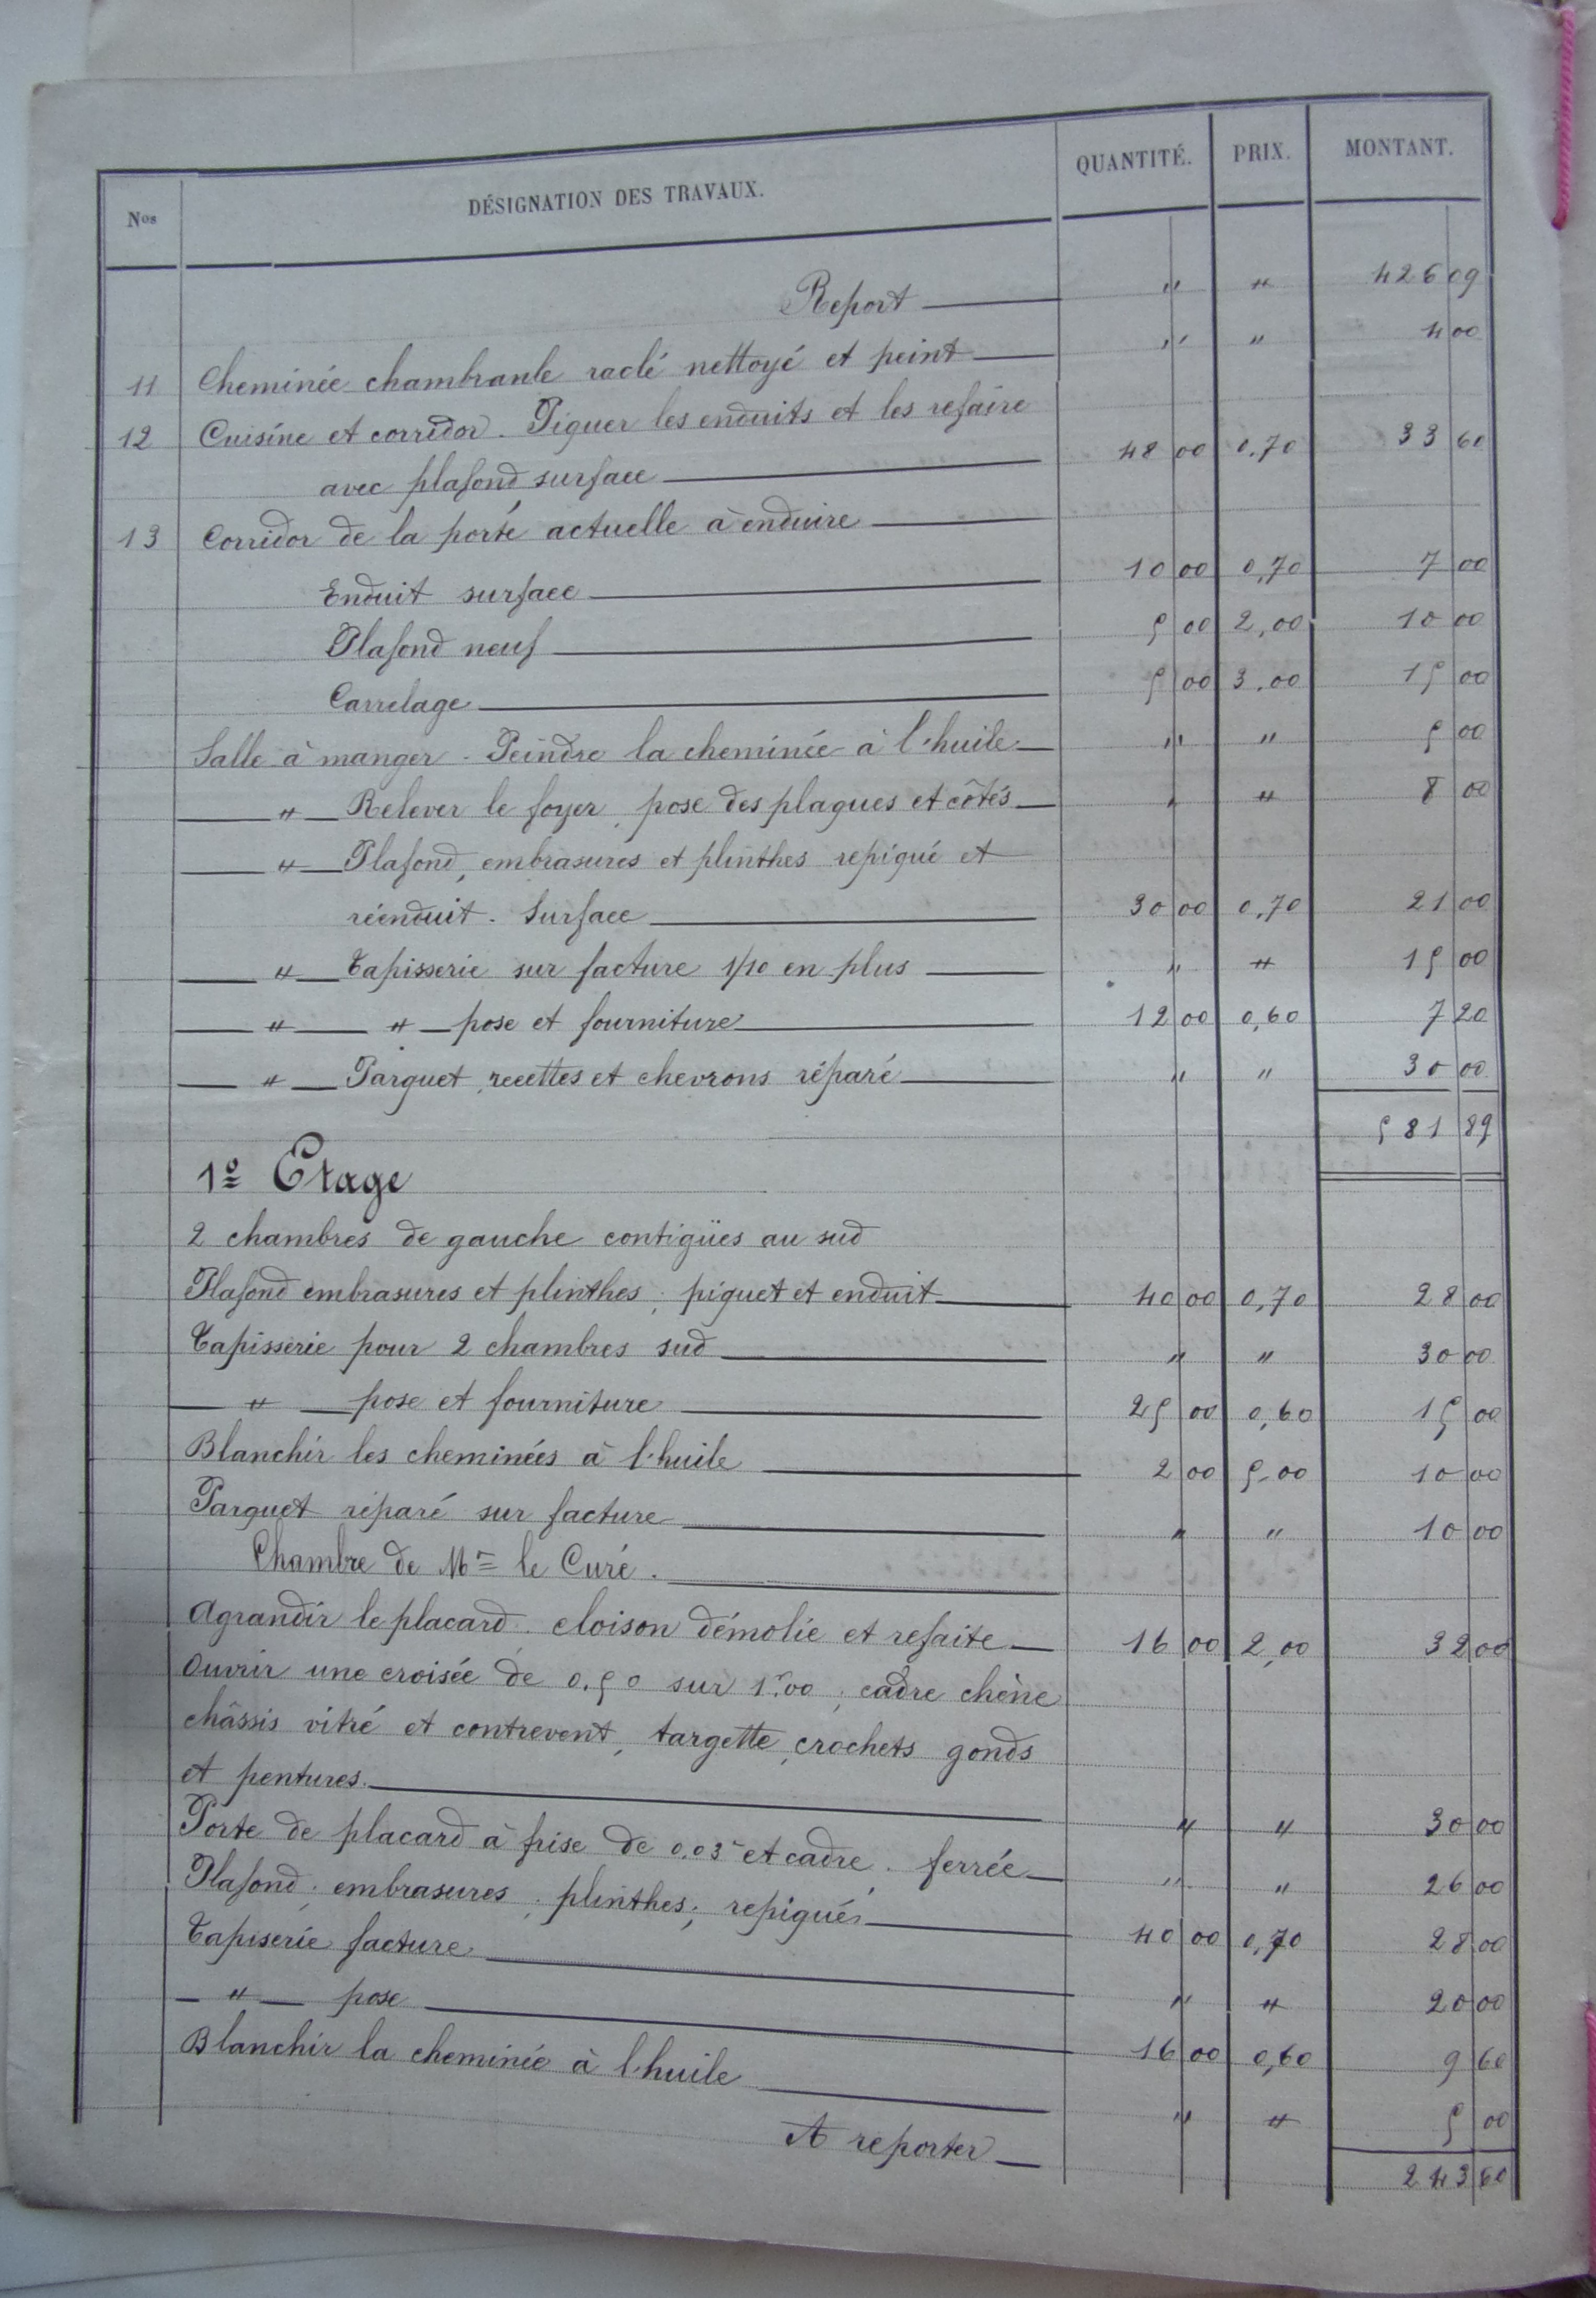 Nos DÉSIGNATION DES TRAVAUX. QUANTITÉ. PRIX. MONTANT.
Report " " 426 09
11 Cheminée chambranle raclé nettoyé et peint " " 4 00
12 Cuisine et corridor. Piquer les enduits et les refaire
avec plafond surface 48 00 0.70 33 60
13 Corridor de la porte actuelle à enduire
Enduit surface 10 00 0,70 7 00
Plafond neuf 5 00 2,00 10 00
Carrelage 5 00 3.00 15 00
Salle à manger. Peindre la cheminée à l'huile " " 5 00
" Relever le foyer, pose des plaques et côtés " " 8 00
" Plafond, embrasures et plinthes repiqué et
réenduit. Surface 30 00 0,70 21 00
" Tapisserie sur facture 1/10 en plus " " 15 00
" " pose et fourniture 12 00 0,60 7 20
" Parquet, recettes et chevrons réparé " " 30 00
581 89
1º Etage
2 chambres de gauche contigües au sud
Plafond embrasures et plinthes, piquet et enduit 40 00 0,70 28 00
Tapisserie pour 2 chambres sud " " 30 00
" pose et fourniture 25 00 0,60 15 00
Blanchir les cheminées à l'huile 2 00 5,00 10 00
Parquet réparé sur facture " " 10 00
Chambre de Mr le Curé.
Agrandir le placard. cloison démolie et refaite 16 00 2,00 32 00
Ouvrir une croisée de 0.50 sur 1m00, cadre chêne
châssis vitré et contrevent, targette, crochets gonds
et pentures. " " 30 00
Porte de placard à frise de 0.03 et cadre, ferrée " " 26 00
Plafond, embrasures, plinthes, repiqués 40 00 0,70 28 00
Tapiserie facture " " 20 00
" pose 16 00 0,60 9 60
Blanchir la cheminée à l'huile " " 5 00
A reporter 243 60